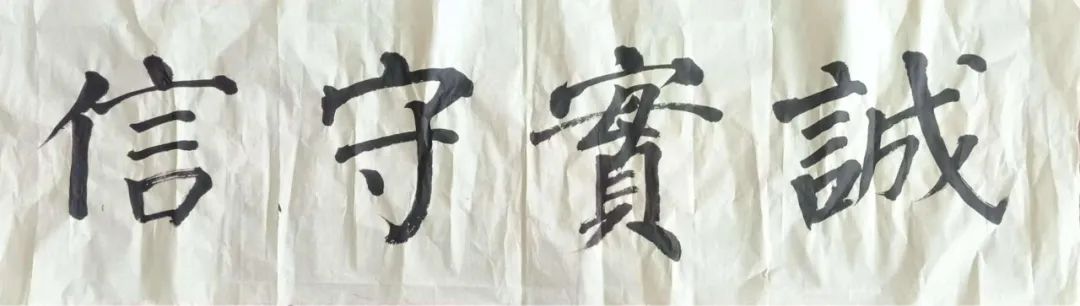 誠實守信